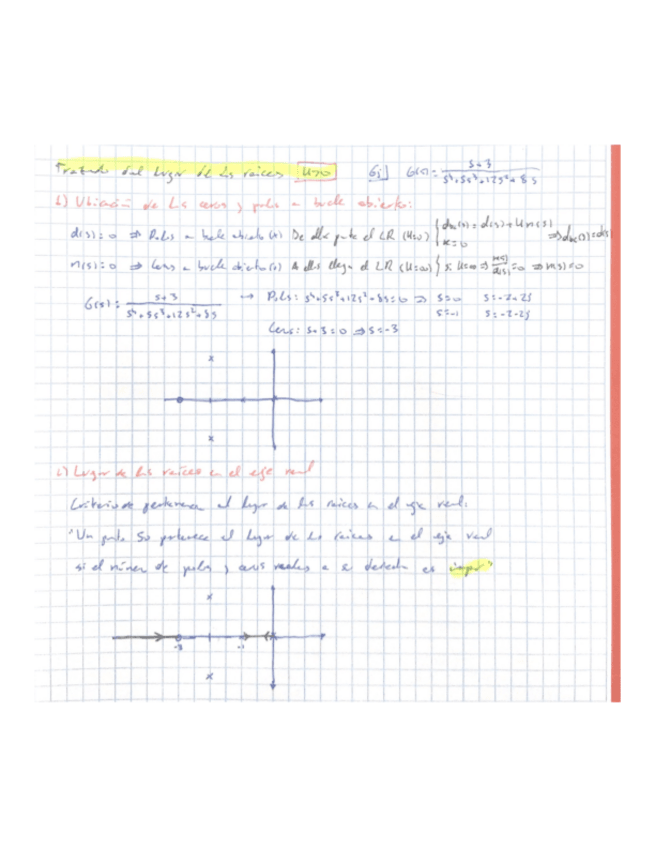 Trazado del lugar de las raíces k>0 Ej G(s) = s+3 / s⁴+5s³+12s²+8s
b) Ubicación de los ceros y polos en bucle abierto:
d(s)=0 ⇒ Polos en bucle abierto (x) De ellos parte el LR (k=0) { d_bc(s) = d(s) + k n(s) k=0 ⇒ d_bc(s)=d(s)
n(s)=0 ⇒ Ceros en bucle abierto (o) A ellos llega el LR (k=∞) } si k=∞ ⇒ n(s)/d(s) = 0 ⇒ n(s)=0
G(s) = s+3 / s⁴+5s³+12s²+8s → Polos: s⁴+5s³+12s²+8s=0 ⇒ s=0 s=-2+2j
s=-1 s=-2-2j
Ceros: s+3=0 ⇒ s=-3
c) Lugar de las raíces en el eje real
Criterio de pertenencia al lugar de las raíces en el eje real:
"Un punto So pertenece al lugar de las raíces en el eje real
si el número de polos y ceros reales a su derecha es impar"
-3 -1